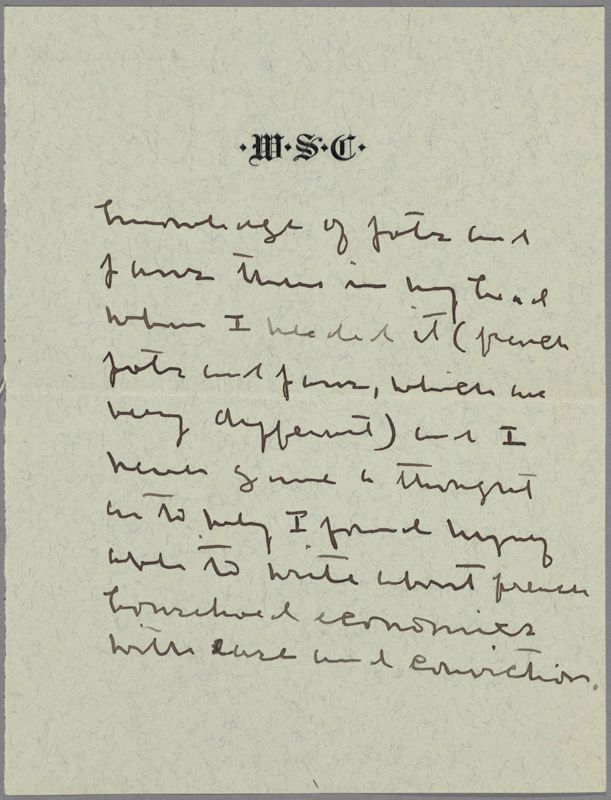 ·W·S·C·
knowledge of pots and
pans there in my head
when I needed it (french
pots and pans, which are
very different) and I
never gave a thought
as to why I found myself
able to write about french
household economics
with ease and conviction.